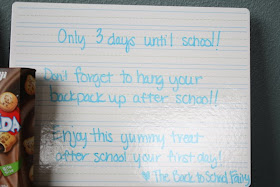 Only 3 days until school!!
Don't forget to hang your
backpack up after school!!
Enjoy this yummy treat
after school your first day!
♥ The Back to School Fairy
DA